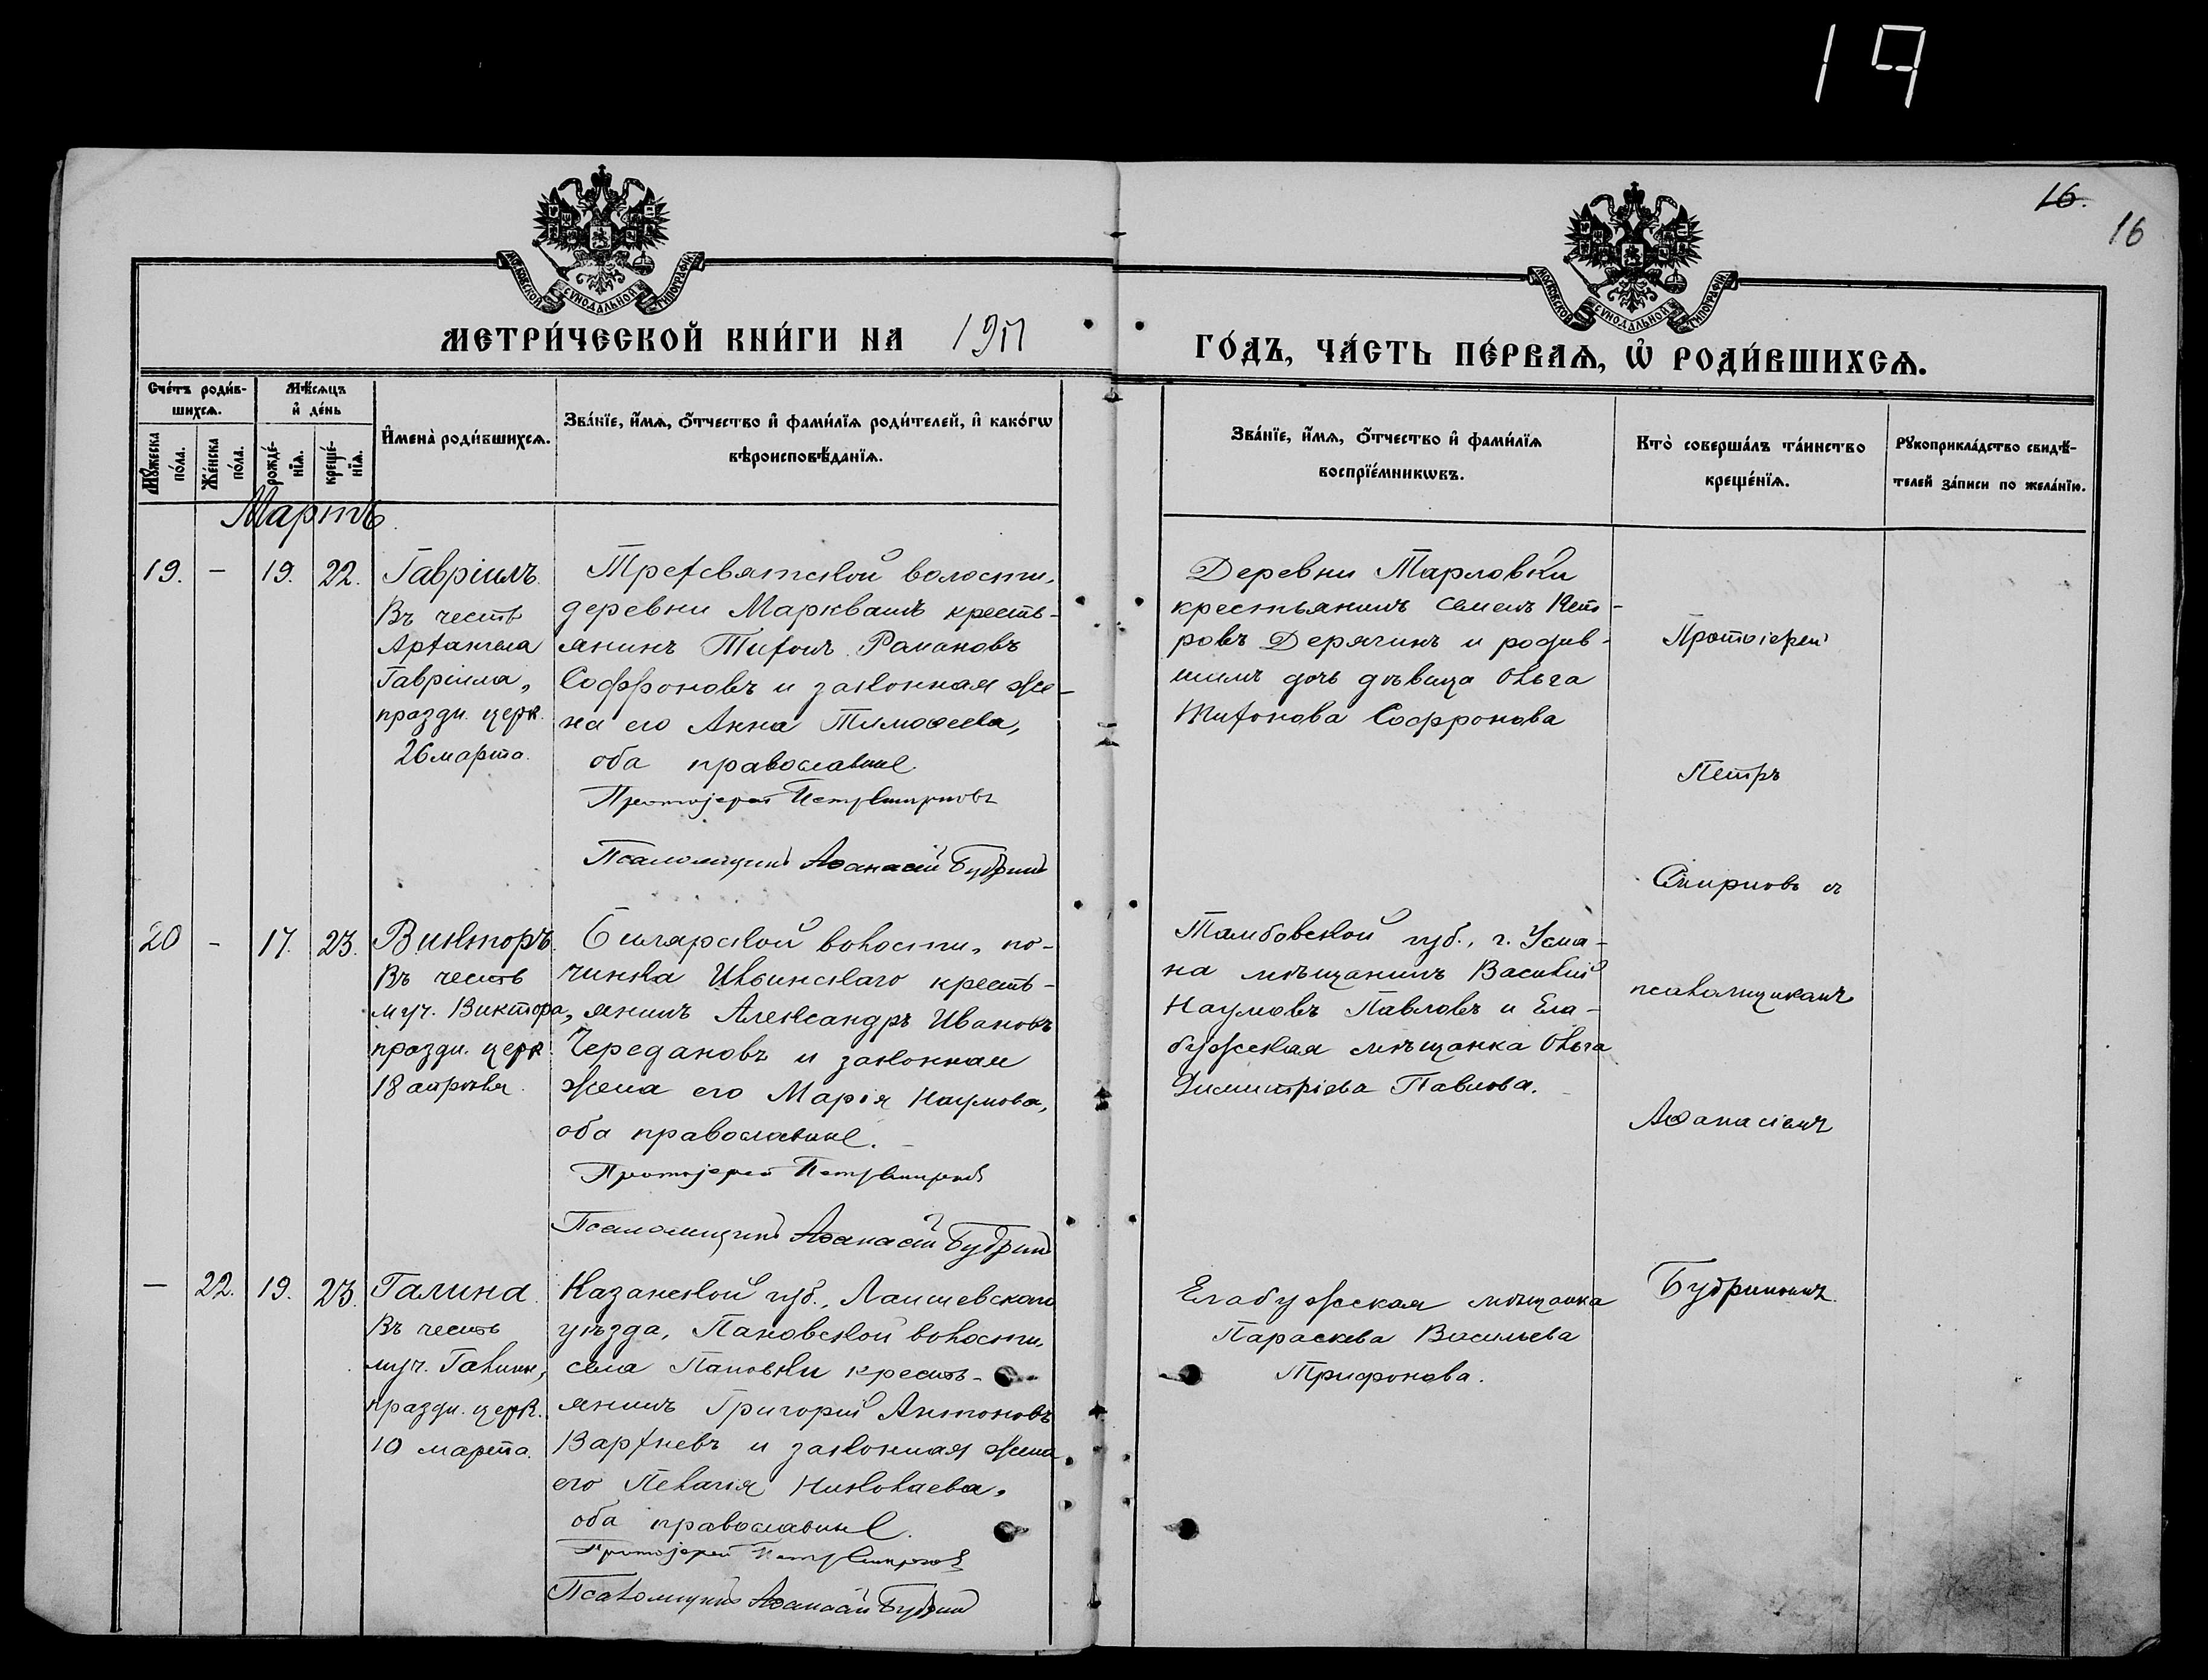 19
16.
16
МОСКОВСКОЙ СѴНОДАЛЬНОЙ ТИПОГРАФІИ
МОСКОВСКОЙ СѴНОДАЛЬНОЙ ТИПОГРАФІИ
МЕТРИ́ЧЕСКОЙ КНИ́ГИ НА 1911
ГО́ДЪ, ЧА́СТЬ ПЕ́РВАѦ, Ѡ҆ РОДИ́ВШИХСѦ.
Сче́тъ роди́в-
шихсѧ.
Мѣ́сѧцъ
и҆ де́нь
Мꙋ́жеска
по́ла.
Же́нска
по́ла.
рожде́-
нїѧ.
креще́-
нїѧ.
И҆мена̀ роди́вшихсѧ.
Зва́нїе, и҆́мѧ, ѻ҆́тчество и҆ фами́лїѧ роди́телей, и҆ како́гѡ
вѣроисповѣ́данїѧ.
Зва́нїе, и҆́мѧ, ѻ҆́тчество и҆ фами́лїѧ
воспрїе́мникѡвъ.
Кто̀ соверша́лъ та́инство
креще́нїѧ.
Рꙋкоприкла́дство свидѣ́-
телей за́писи по жела́нїю.
Мартъ.
19. – 19. 22.
Гавріилъ.
Въ честь
Архангела
Гавріила,
праздн. церк.
26 марта.
Трехсвятской волости,
деревни Марквашъ кресть-
янинъ Тихонъ Романовъ
Софроновъ и законная же-
на его Анна Тимоѳеева,
оба православные
Протоіерей Петръ Смирновъ
Псаломщикъ Аѳанасій Будринъ
Деревни Тарловки
крестьянинъ Семенъ Пет-
ровъ Дерягинъ и родив-
шимъ дочь дѣвица Ольга
Тихонова Софронова
Протоіерей
Петръ
Смирновъ съ
псаломщикомъ
Аѳанасіемъ
Будринымъ.
20 – 17. 23.
Викторъ.
Въ честь
муч. Виктора,
праздн. церк.
18 апрѣля.
Билярской волости, по-
чинка Ильинскаго кресть-
янинъ Александръ Ивановъ
Чередановъ и законная
жена его Марія Наумова,
оба православные.
Протоіерей Петръ Смирновъ
Псаломщикъ Аѳанасій Будринъ
Тамбовской губ., г. Усма-
на мѣщанинъ Василий
Наумовъ Павловъ и Ела-
бужская мѣщанка Ольга
Димитріева Павлова.
– 22. 19. 23.
Галина.
Въ честь
муч. Галины,
праздн. церк.
10 марта.
Казанской губ., Лаишевскаго
уѣзда, Пановской волости,
села Пановки кресть-
янинъ Григорій Антоновъ
Вархневъ и законная жена
его Пелагія Николаева,
оба православные.
Протоіерей Петръ Смирновъ
Псаломщикъ Аѳанасій Будринъ
Елабужская мѣщанка
Параскева Васильева
Трифонова.